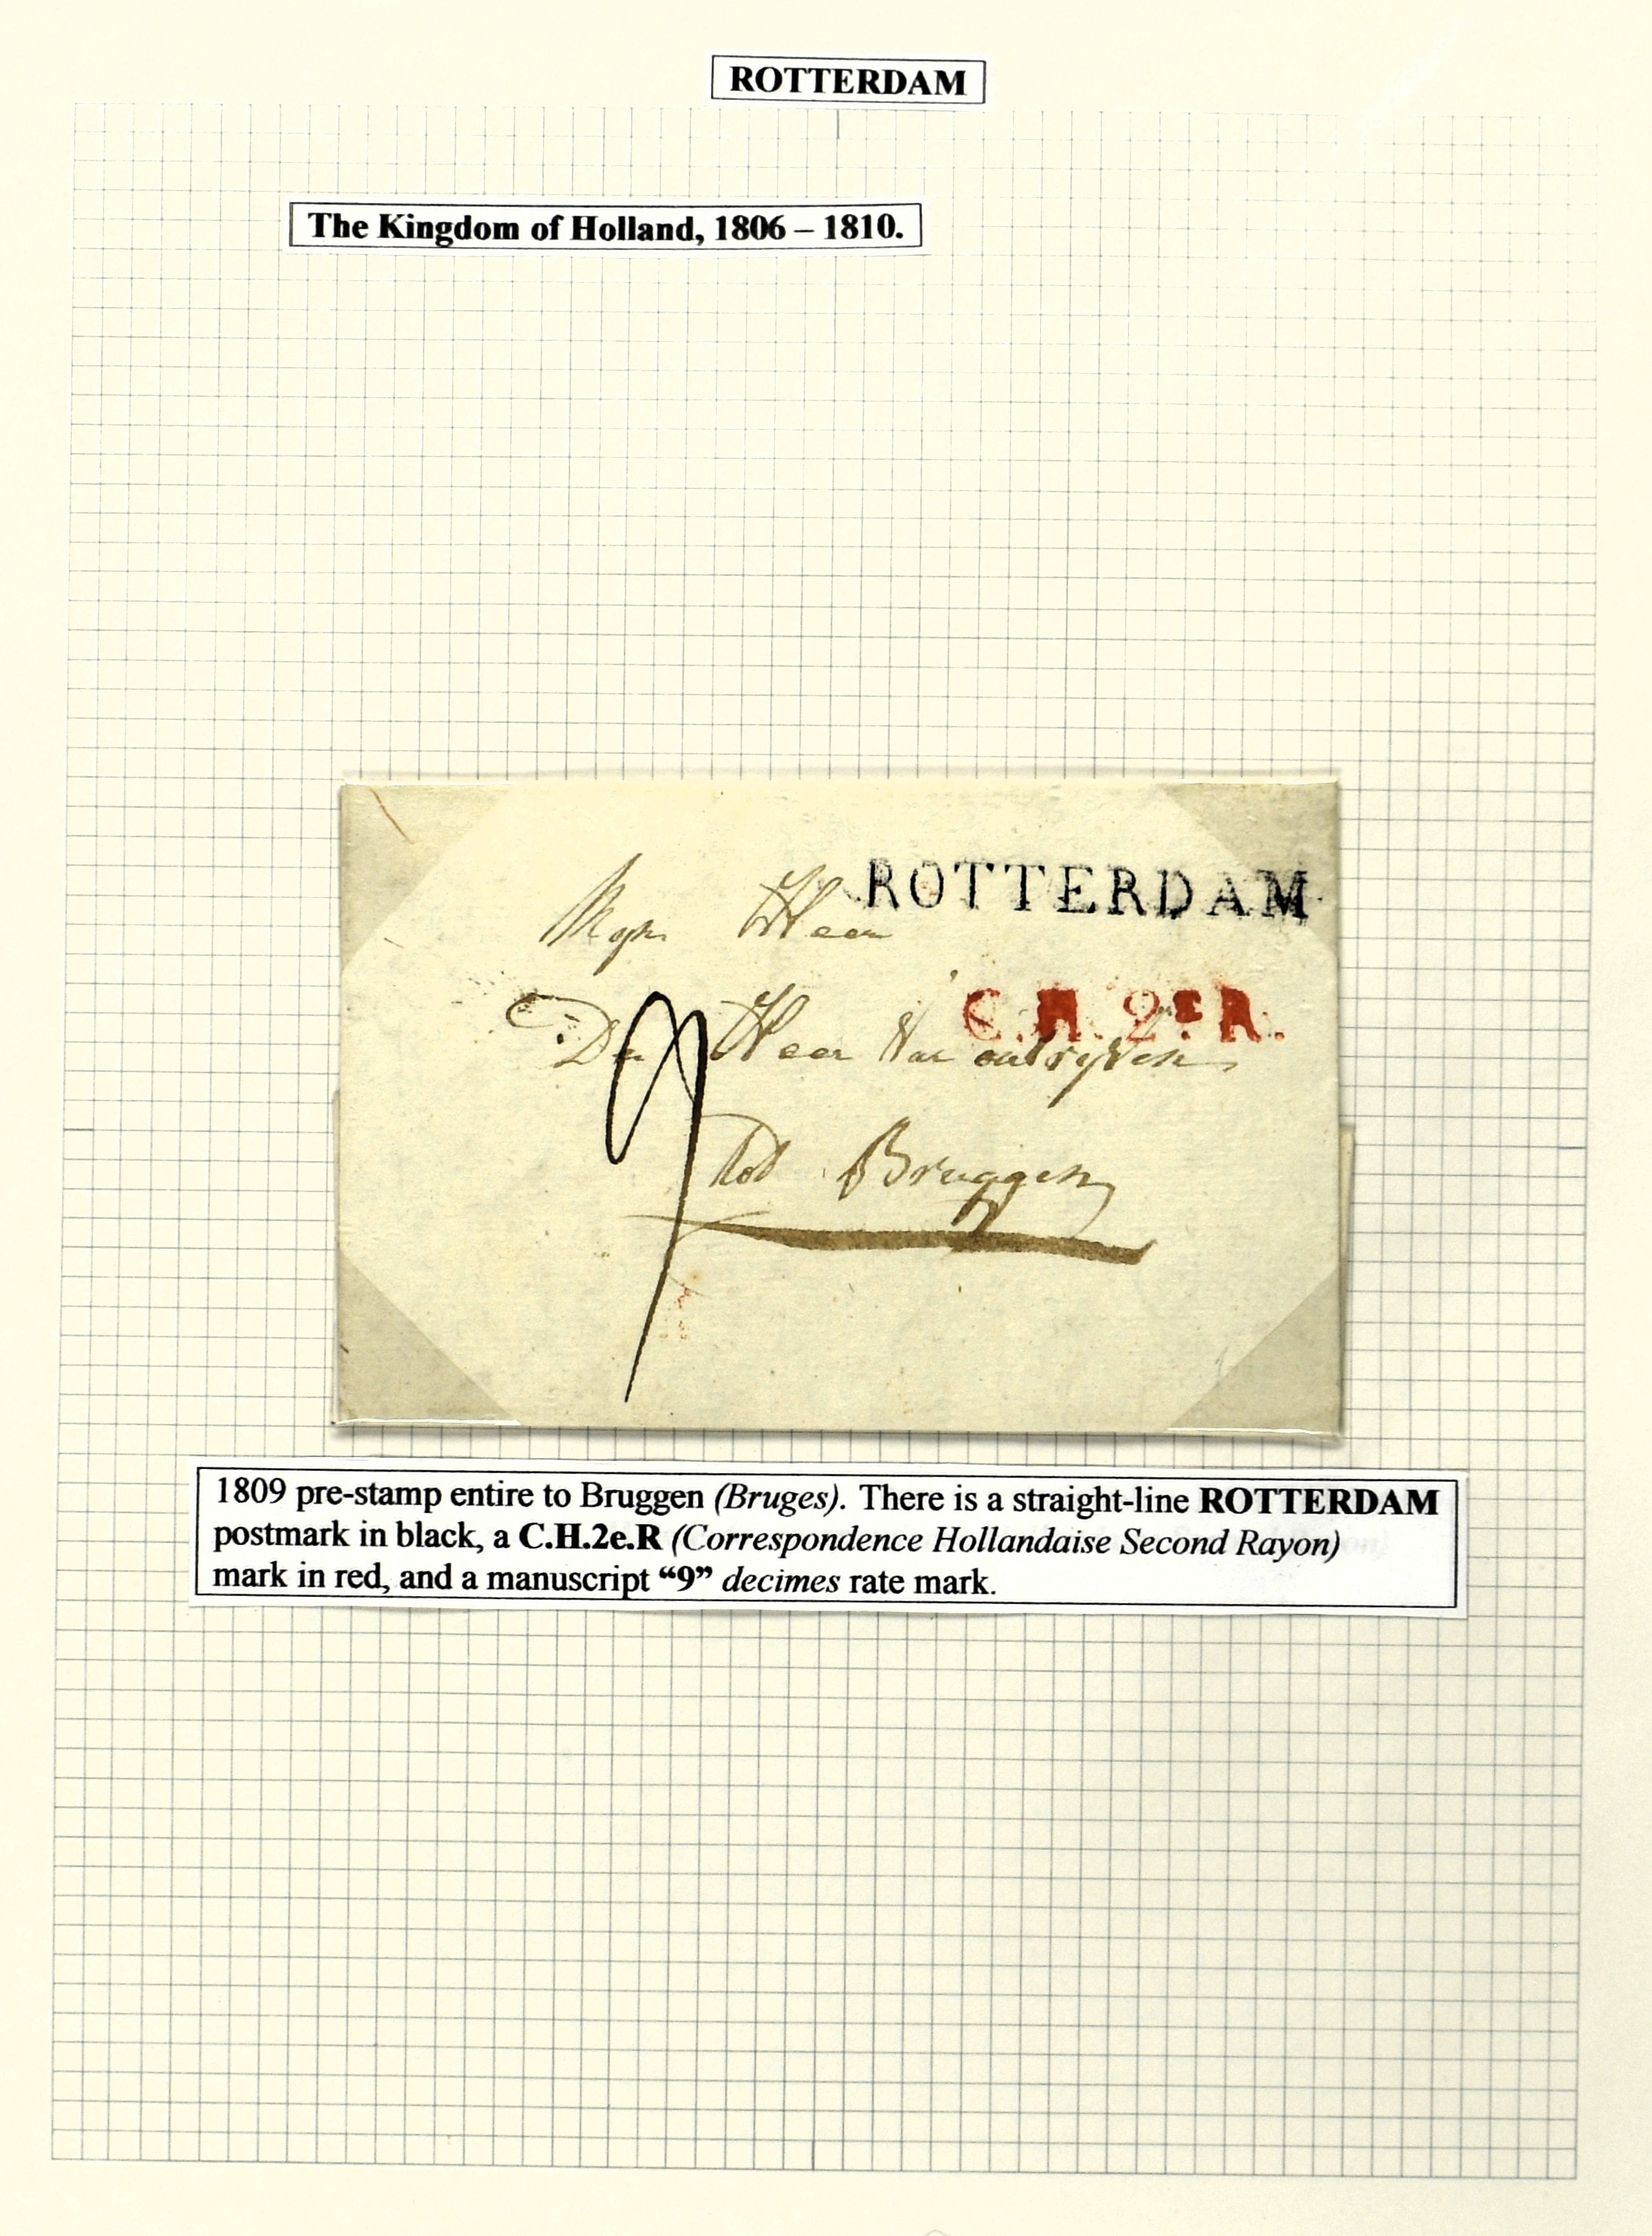 ROTTERDAM
The Kingdom of Holland, 1806 – 1810.
ROTTERDAM
Myn Heer
C.H.2E R.
De Heer Van
9
Tot Bruggen
1809 pre-stamp entire to Bruggen (Bruges). There is a straight-line ROTTERDAM
postmark in black, a C.H.2e.R (Correspondence Hollandaise Second Rayon)
mark in red, and a manuscript “9” decimes rate mark.